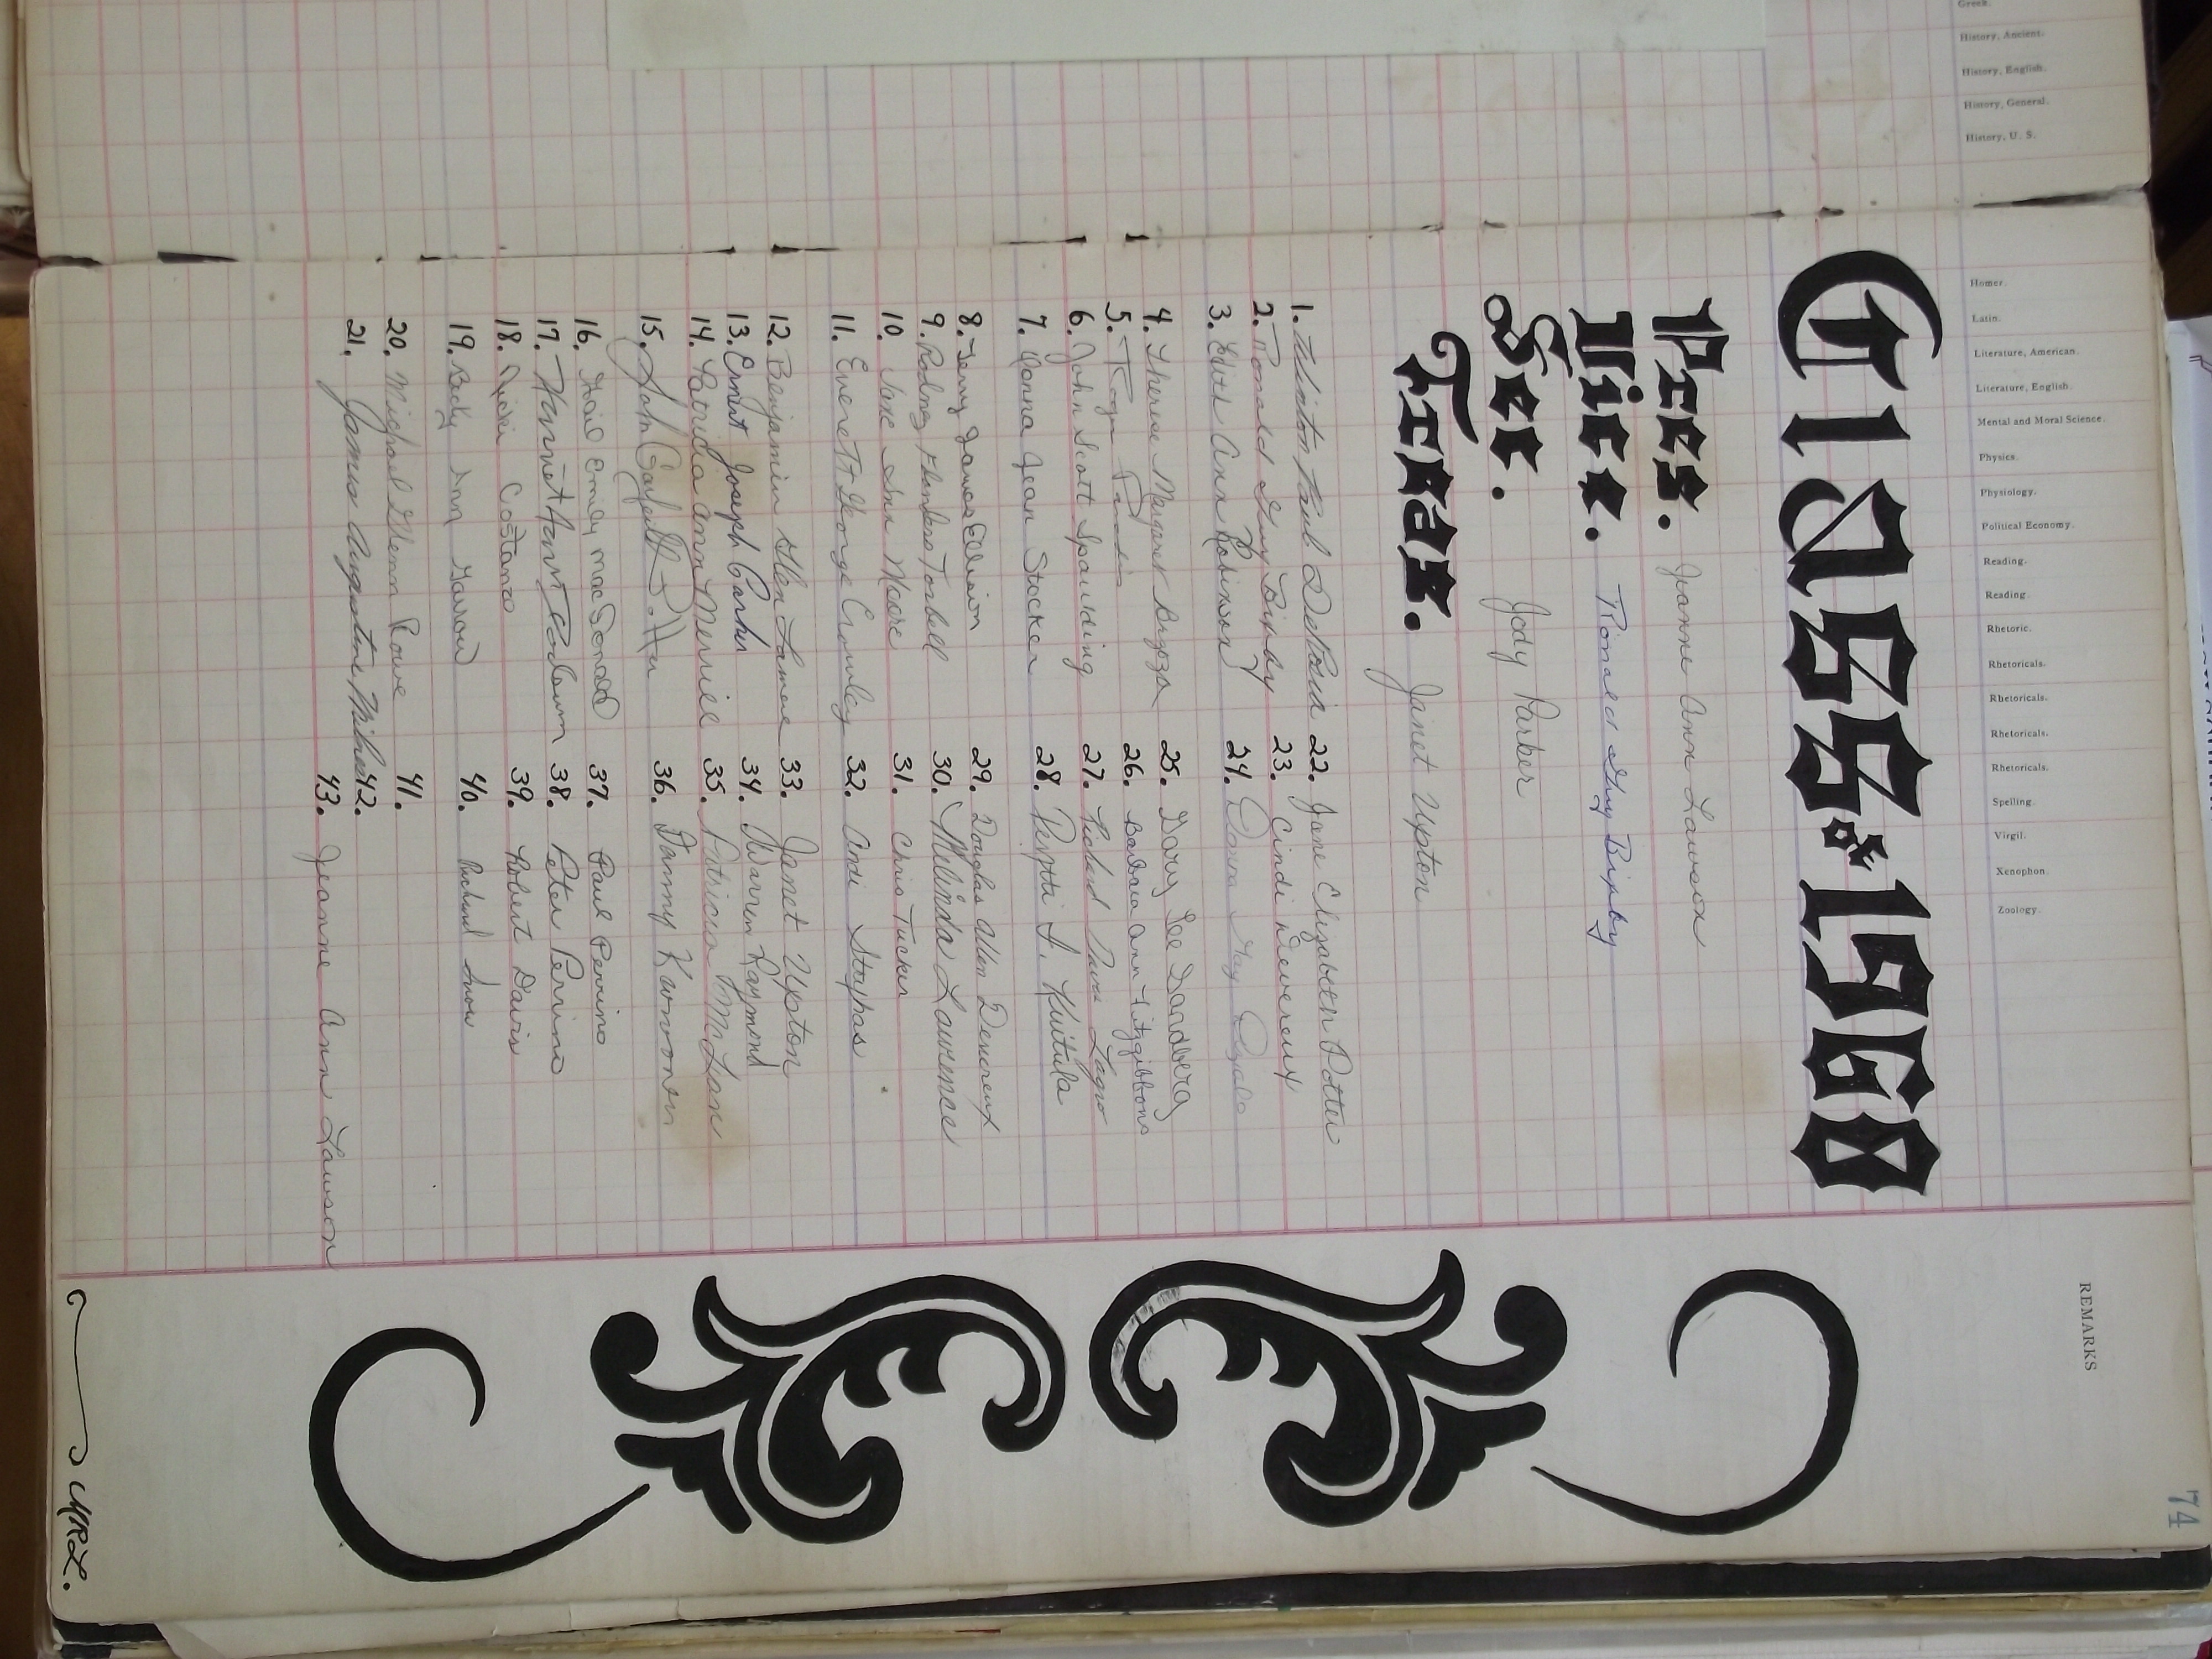 Greek.
History, Ancient.
History, English.
History, General.
History, U. S.
Homer.
Latin.
Literature, American.
Literature, English.
Mental and Moral Science.
Physics.
Physiology.
Political Economy.
Reading.
Reading.
Rhetoric.
Rhetoricals.
Rhetoricals.
Rhetoricals.
Rhetoricals.
Spelling.
Virgil.
Xenophon.
Zoology.
REMARKS
74
Class of 1968
Pres. Jeanne Ann Lawson
Vice. Ronald Guy Bixby
Sec. Jody Parker
Treas. Janet Upton
1. Paul
2. Ronald Guy Bixby
3. Edith Ann Robinson
4. Therese Margaret
5. Roger
6. John Scott Spaulding
7. Donna Jean Stocker
8. Terry James Ellison
9. Rodney Tarbell
10. Jane Ann Moore
11. Everett George Crumley
12. Benjamin Glen
13. Ernest Joseph
14. Patricia Ann Merrill
15. John
16. Gail Emily MacDonald
17. Harriet
18. Vicki Costano
19. Becky Ann
20. Michael Glenn Rowe
21. James Augustine
22. Jane Elizabeth Potter
23. Cindi Devereux
24. Donna May
25. Gary Lee
26. Barbara Ann Fitzgibbons
27. Richard
28. Pertti I. Kuitula
29. Douglas Allen Devereux
30. Melinda Lawrence
31. Chris Tucker
32. Andi
33. Janet Upton
34. Warren Raymond
35. Patricia
36. Danny Karvonen
37. Paul Perrino
38. Peter Perrino
39. Robert Davis
40. Richard Snow
41.
42.
43. Jeanne Ann Lawson
MRL.